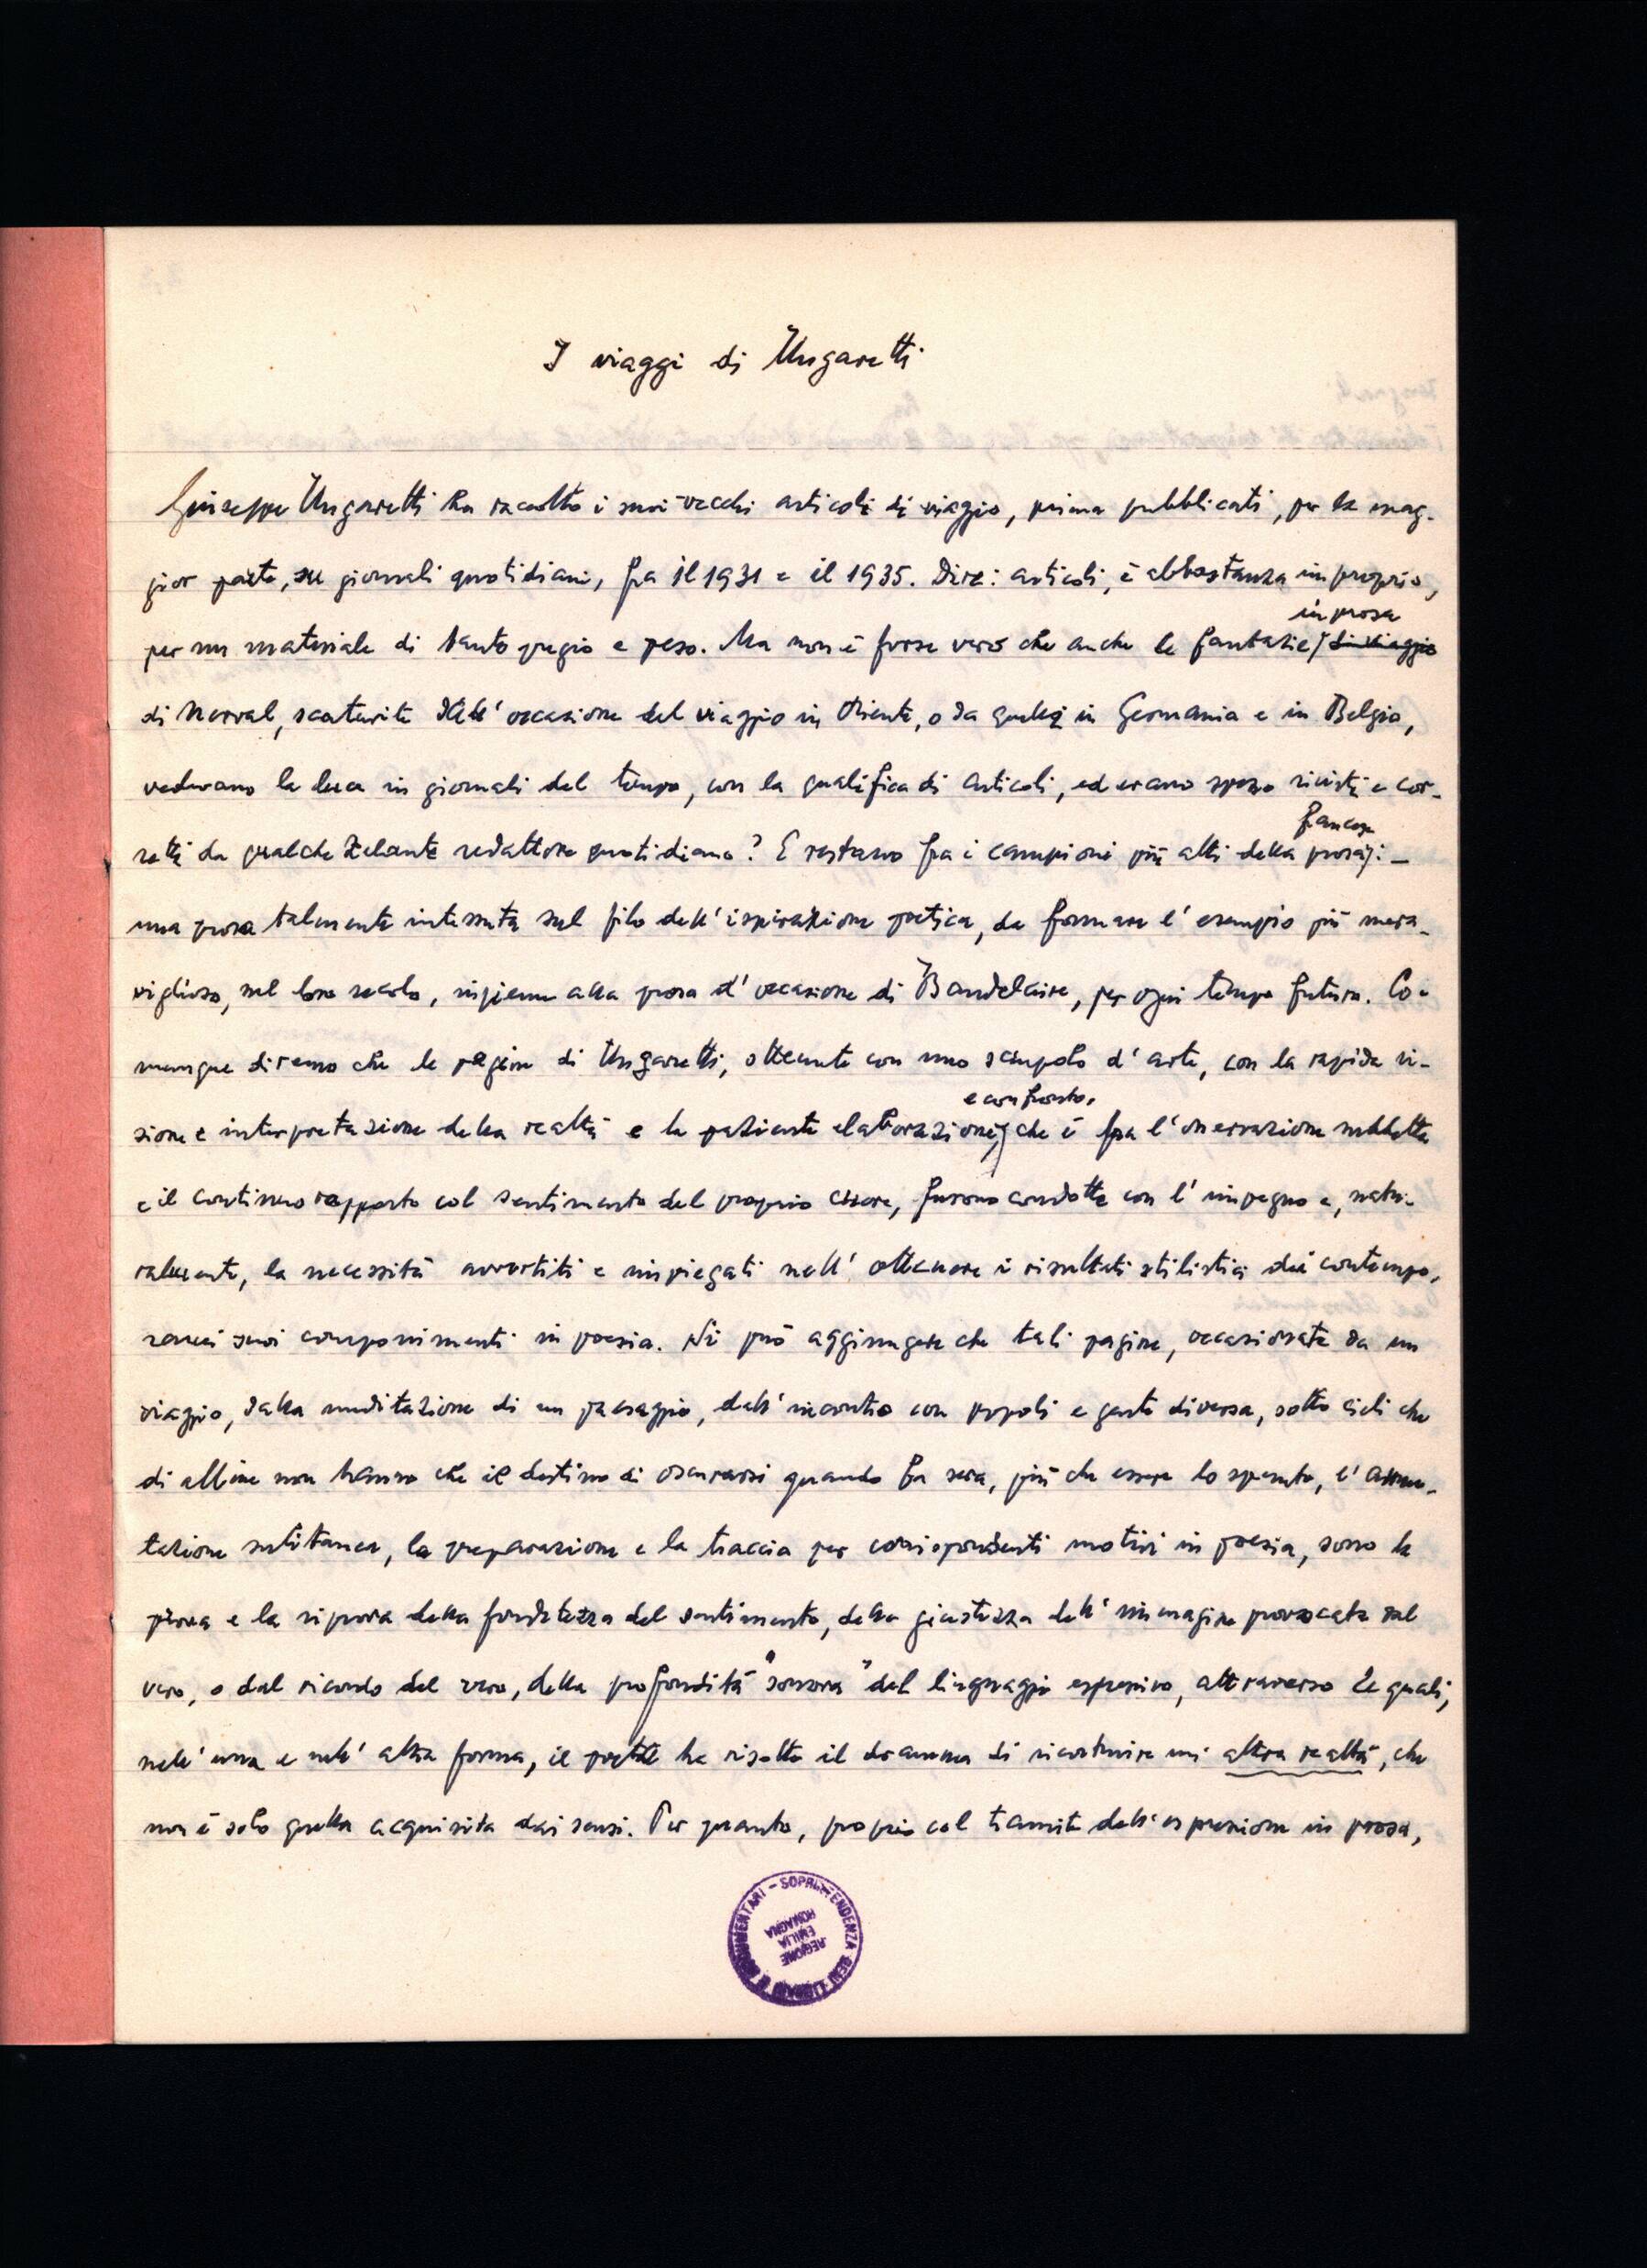 I viaggi di Ungaretti
Giuseppe Ungaretti ha raccolto i suoi vecchi articoli di viaggio, prima pubblicati, per la mag-
gior parte, su giornali quotidiani, fra il 1931 e il 1935. Dire: articoli, è abbastanza improprio,
in prosa
per un materiale di tanto pregio e peso. Ma non è forse vero che anche le fantasie di viaggio
di Nerval, scaturite dall'occasione del viaggio in Oriente, o da quelli in Germania e in Belgio,
vedevano la luce in giornali del tempo, con la qualifica di articoli, ed erano spesso rivisti e cor-
francese
retti da qualche zelante redattore quotidiano? E restano fra i campioni più alti della prosa: –
una prosa talmente intessuta sul filo dell'ispirazione poetica, da formare l'esempio più mera-
viglioso, nel loro secolo, insieme alla prosa d'occasione di Baudelaire, per ogni tempo futuro. Co-
munque diremo che le pagine di Ungaretti, ottenute con uno scrupolo d'arte, con la rapida vi-
e confronto,
sione e interpretazione della realtà e la paziente elaborazione che è fra l'osservazione suddetta
e il continuo rapporto col sentimento del proprio essere, furono condotte con l'impegno e, natu-
ralmente, la necessità avvertiti e impiegati nell'ottenere i risultati stilistici dei contempo-
ranei suoi componimenti in poesia. Si può aggiungere che tali pagine, occasionate da un
viaggio, dalla meditazione di un paesaggio, dall'incontro con popoli e gente diversa, sotto cieli che
di affine non hanno che il destino di oscurarsi quando fa sera, più che essere lo spunto, l'
tazione, la preparazione e la traccia per corrispondenti motivi in poesia, sono la
prova e la riprova della fondatezza del sentimento, della giustezza dell'immagine provocata dal
vero, o dal ricordo del vero, della profondità "sonora" del linguaggio espressivo, attraverso le quali,
nell'una e nell'altra forma, il poeta ha risolto il dramma di ricostruire un'altra realtà, che
non è solo quella acquisita dai sensi. Per quanto, proprio col tramite dell'espressione in prosa,
SOPRINTENDENZA BENI LIBRARI E DOCUMENTARI –
REGIONE
EMILIA
ROMAGNA